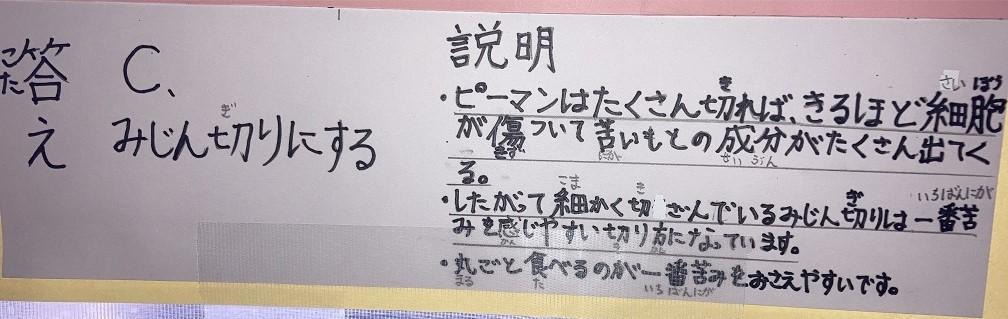 答え
C、
みじん切りにする
説明
・ピーマンはたくさん切れば、きるほど細胞
が傷ついて苦いもとの成分がたくさん出てく
る。
・したがって細かく切 ざんでいるみじん切りは一番苦
みを感じやすい切り方になっています。
・丸ごと食べるのが一番苦みをおさえやすいです。